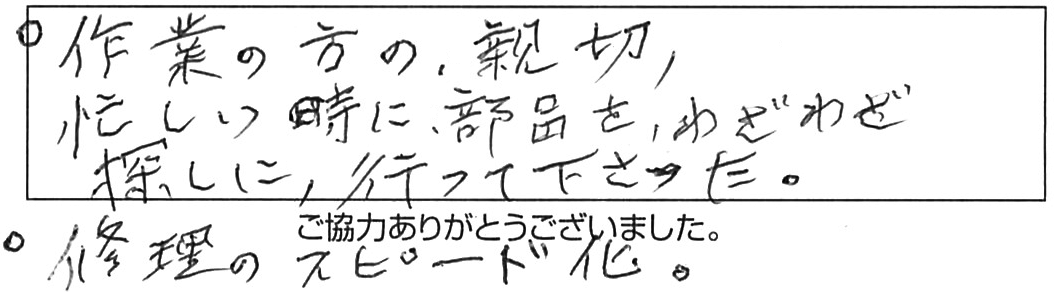 ○作業の方の、親切、
忙しい時に、部品を、わざわざ
探しに、行って下さった。
ご協力ありがとうございました。
○修理のスピード化。